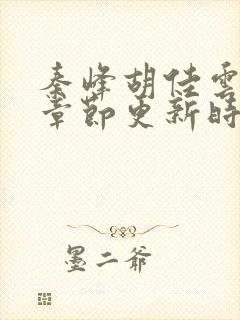 秦峰胡佳雲
章節更新時
墨二爺